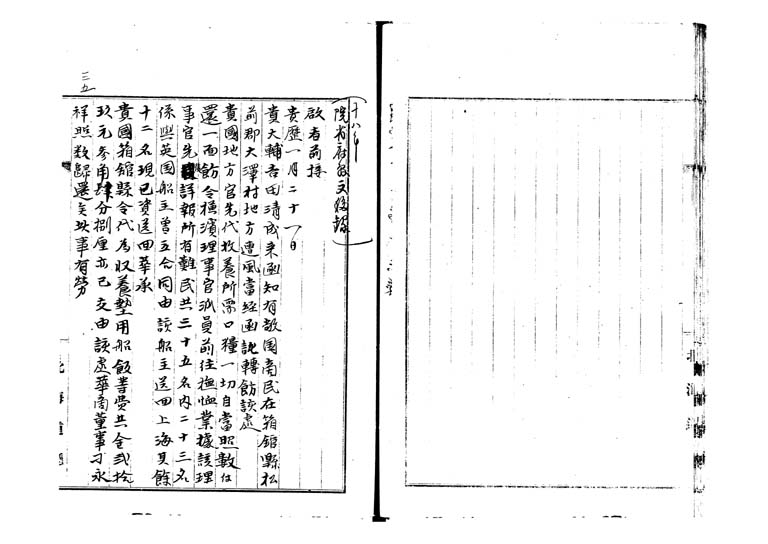 十八年
院省府縣文移録
啟者前接
貴歷一月二十一日
貴大輔吉田清成来函知有敝国商民在箱館縣松
前郡大澤村地方遭風當經函託轉飭該處
貴國地方官先代救養所需口糧一切自當照數付
還一面飭令横濱理事官派員前往撫恤業據該理
事官先詳報所有難民共三十五名内二十三名
係與英国船主曾立合同由該船主送回上海其餘
十二名現已資送回華承
貴國箱館縣令代為収養墊用船飯等費共金弍拾
玖元叁角肆分捌厘亦已交由該處華商董事刁永
祥照数歸還矣此事有勞
三五
北海道